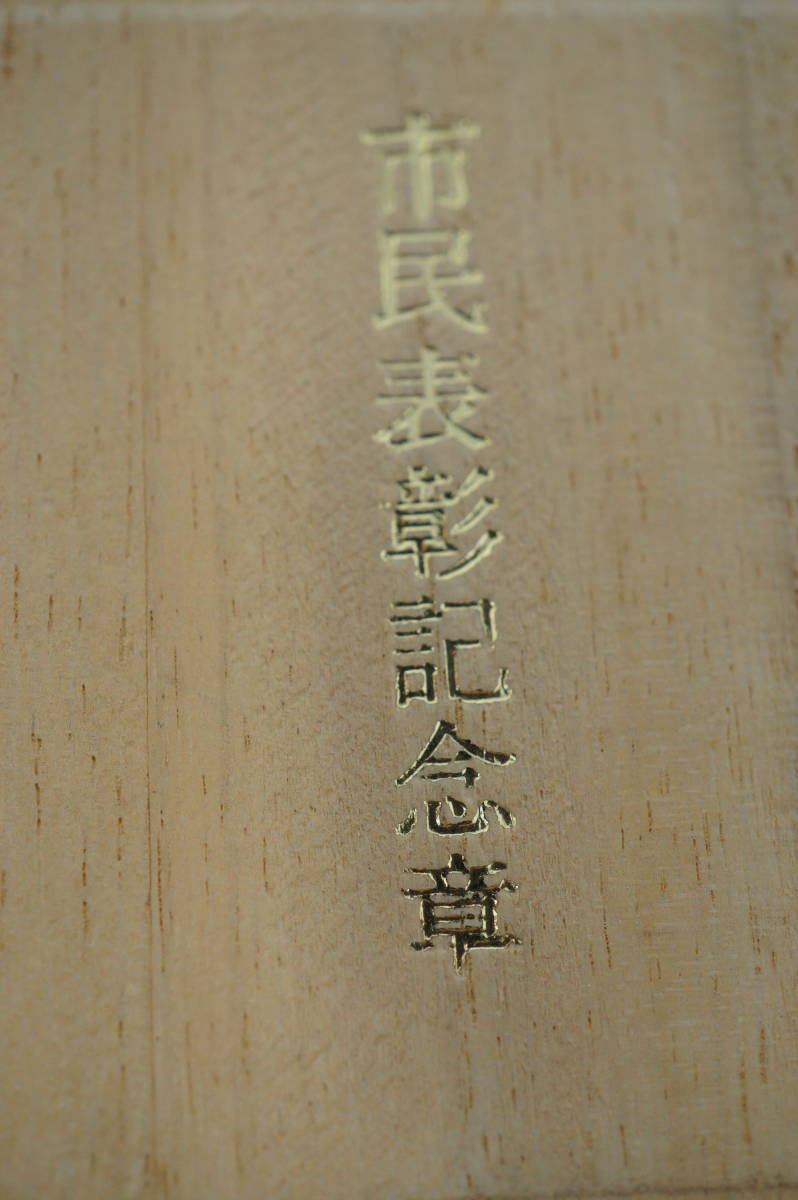 市民表彰記念章